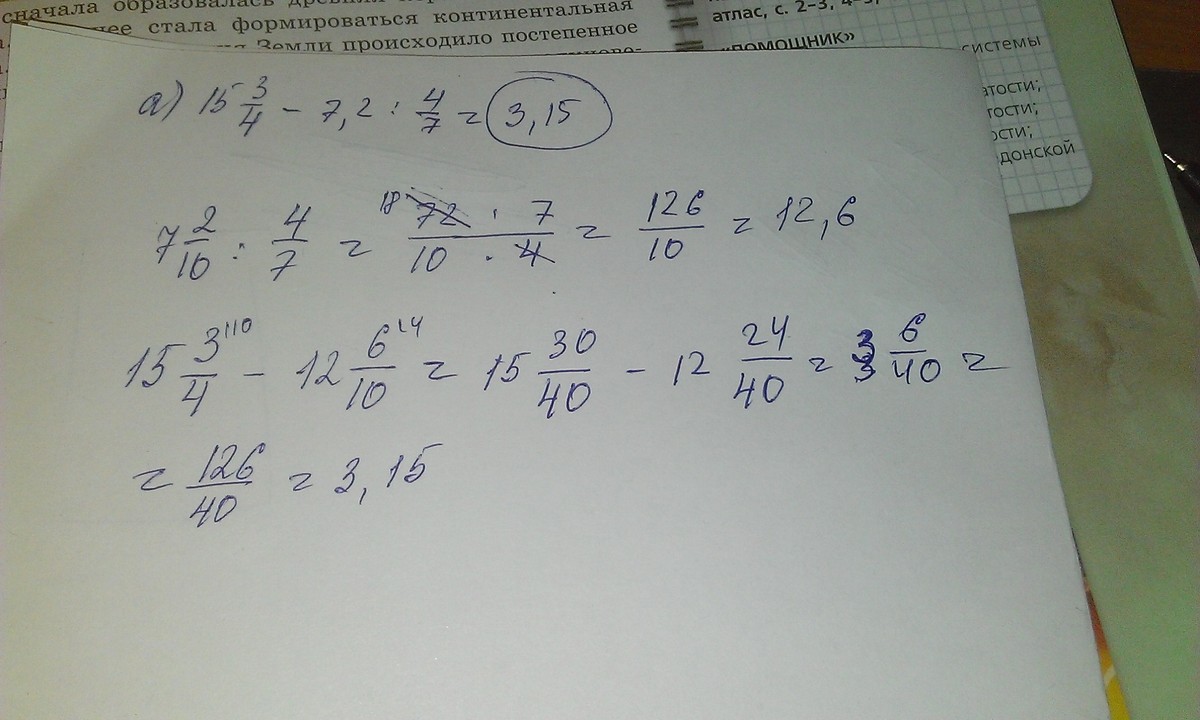 сначала образовалась
стала формироваться континентальная
Земли происходило постепенное
атлас, с. 2–3,
«ПОМОЩНИК»
системы
донской
а) 15 3/4 − 7,2 : 4/7 = 3,15
7 2/10 : 4/7 = 18 72 · 7 / 10 · 4 = 126/10 = 12,6
15 3/4 ·10 − 12 6/10 ·4 = 15 30/40 − 12 24/40 = 3 6/40 =
= 126/40 = 3,15